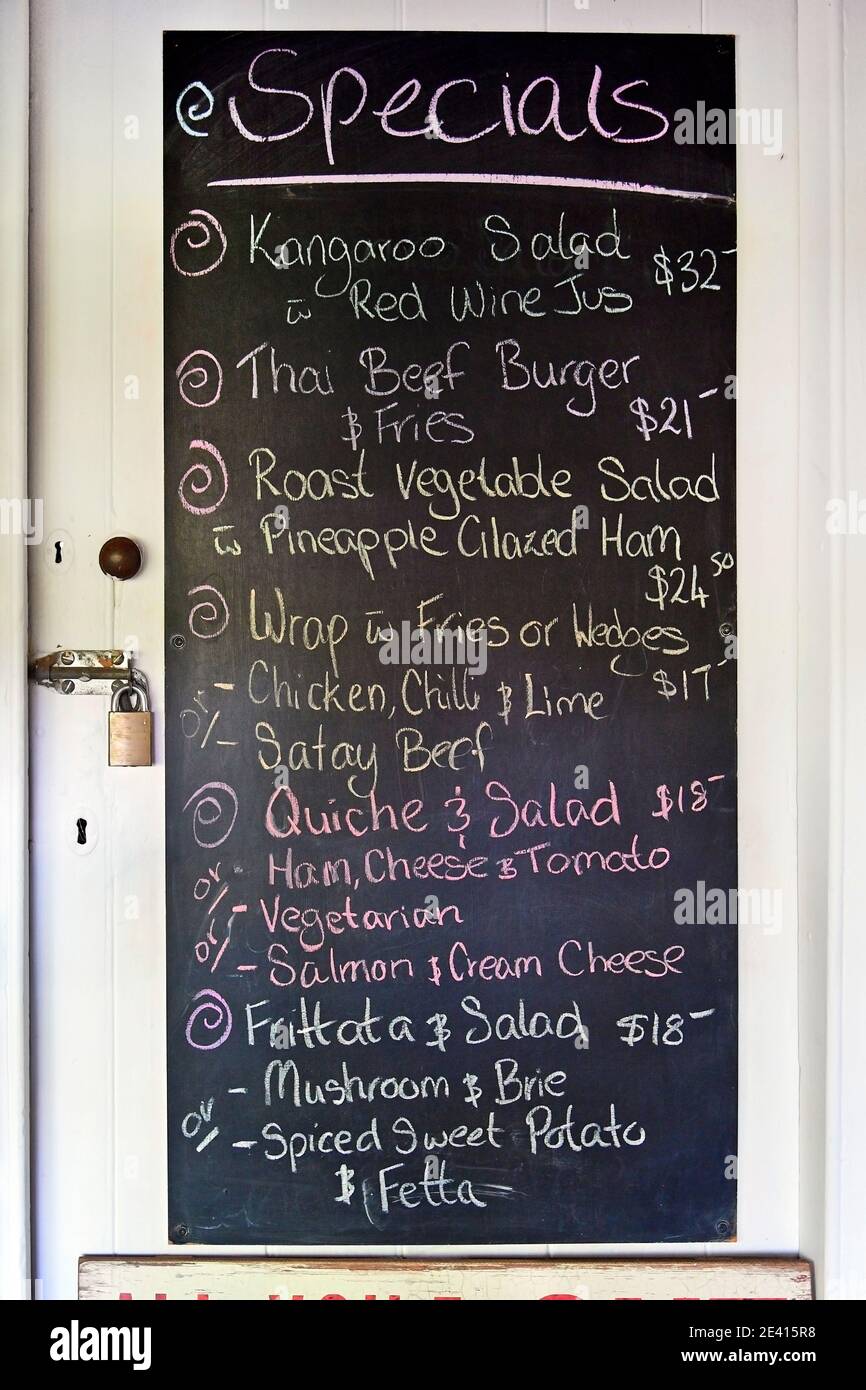 Specials
Kangaroo Salad $32-
w Red Wine Jus
Thai Beef Burger
& Fries $21-
Roast Vegetable Salad
w Pineapple Glazed Ham
$24.50
Wrap w Fries or Wedges
- Chicken, Chilli & Lime $17-
or/- Satay Beef
Quiche & Salad $18-
Ham, Cheese & Tomato
or/- Vegetarian
or/- Salmon & Cream Cheese
Frittata & Salad $18-
- Mushroom & Brie
or/- Spiced Sweet Potato
& Fetta
alamy
Image ID: 2E415R8
www.alamy.com